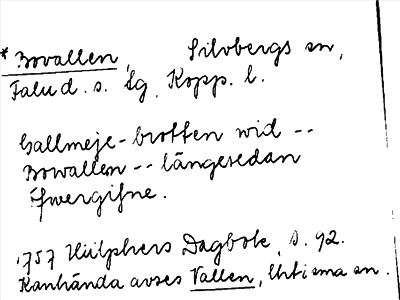 * Bovallen, Silvbergs sn,
Falu d. s. lg, Kopp. l.
Gallmeje-brotten wid --
Bowallen -- längesedan
öfwergifne.
1757 Hülphers Dagbok, s. 92.
Kanhända avses Vallen, sn.